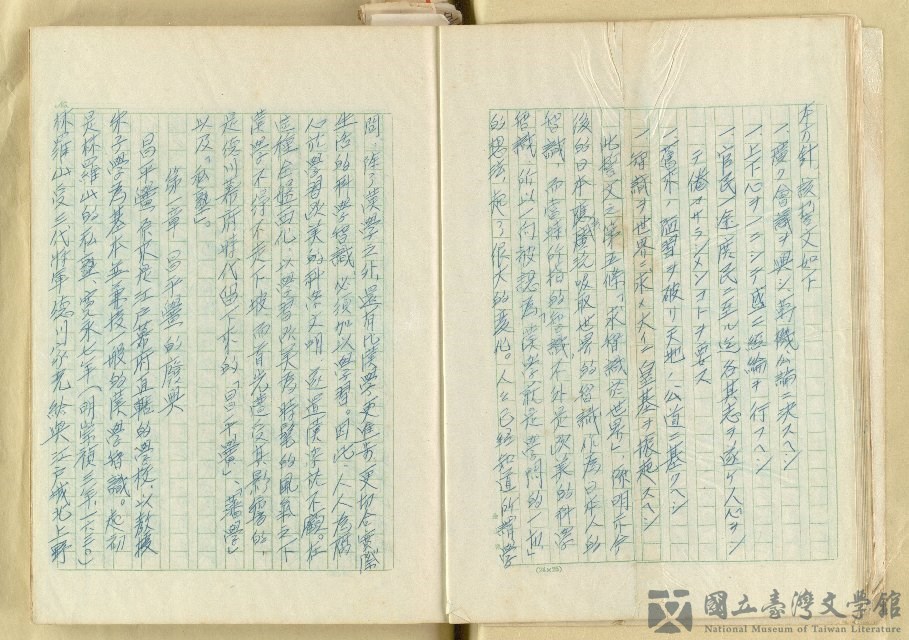 本方針 該誓文如下
一、廣ク會議ヲ興シ萬機公論ニ決スヘシ
一、上下心ヲ一ニシテ盛ニ經綸ヲ行スヘシ
一、官民一途庶民ニ至ル迄各其志ヲ遂ケ人心ヲシ
テ倦マサラシメンコトヲ要ス
一、舊來ノ陋習ヲ破リ天地ノ公道ニ基クヘシ
一、智識ヲ世界ニ求メ大イニ皇基ヲ振起スヘシ
此誓文之第五條「求智識於世界」陳明亦今
後的日本應該吸取世界的智識作為日本人的
智識,而當時所指的智識不外是歐美的科學
智識,所以一向被認為漢學就是學問的「一切」
的思想,起了很大的變化。人人已經知道所謂學
問,除了漢學之外,還有比漢學更進步,更切合實際
生活的科學智識,必須加以學習。因此,人人為關
心於學習歐美的科學文明,而遺漢於不顧。在
這種全盤西化,以學習歐美為時髦的風氣之下
漢學不得不走下坡,而首先遭受其影響的,
是德川幕府時代留下來的「昌平黌」、「藩學」
以及「私塾」。
第一章 昌平黌的廢興
昌平黌,原來是江戶幕府直轄的學校,以教授
朱子學為基本,並兼授一般的漢學智識。起初
是林羅山的私塾,寬永七年(明崇禎三年一六三〇)
林羅山受三代將軍德川家光給與江戶城北上野
(25×25)
國立臺灣文學館
National Museum of Taiwan Literature